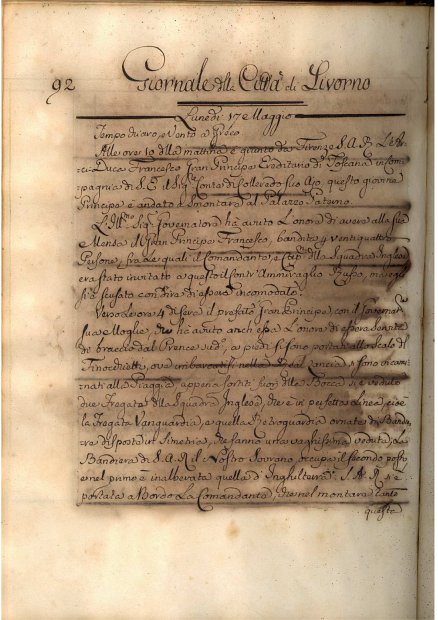 92 Giornale della Città di Livorno
Lunedì 17 Maggio
Tempo vario, e Vento a Greco
Alle ore 10 della mattina è giunto da Firenze S.A.R. L'Ar-
ci-Duca Francesco Gran Principe Ereditario di Toscana in com-
pagnia di S.E. il Sig. Conte di Colloredo suo Ajo, questo giovine
Principe è andato a smontare al Palazzo Paterno.
L'Ill.mo Sig. Governatore ha avuto L'onore di avere alla sua
Mensa il Gran Principe Francesco, bandita per ventiquattro
Persone, fra le quali il Comandante, e Cap. della Squadra Inglese
era stato invitato a questo il Contr'Ammiraglio Russo, ma egli
si è scusato con dire di essere incomodato.
Verso le ore 4 di sera il prefato Gran Principe, con il Governat.
sua Moglie, che ha avuto anch'essa L'onore di essere servita
di braccio dal Prence sud.o a piedi si sono portati allo Scalo di
Finocchietto, ove imbarcatisi nella Real Lancia, si sono incam-
minati alla Spiaggia, appena sortiti fuori della Bocca si è veduto
due Fregate della Squadra Inglese, che è in perfetta Linea cioè
la Fregata Vanguardia, e quella Retroguardia ornate di Bandie-
re disposte in Simetria, che fanno una vaghissima veduta, La
Bandiera di S.A.R. il Nostro Sovrano occupa il secondo posto
e nel primo è inalberata quella d'Inghilterra. S.A.R. si è
portata a Bordo La Comandante, che nel montare tanto
questa